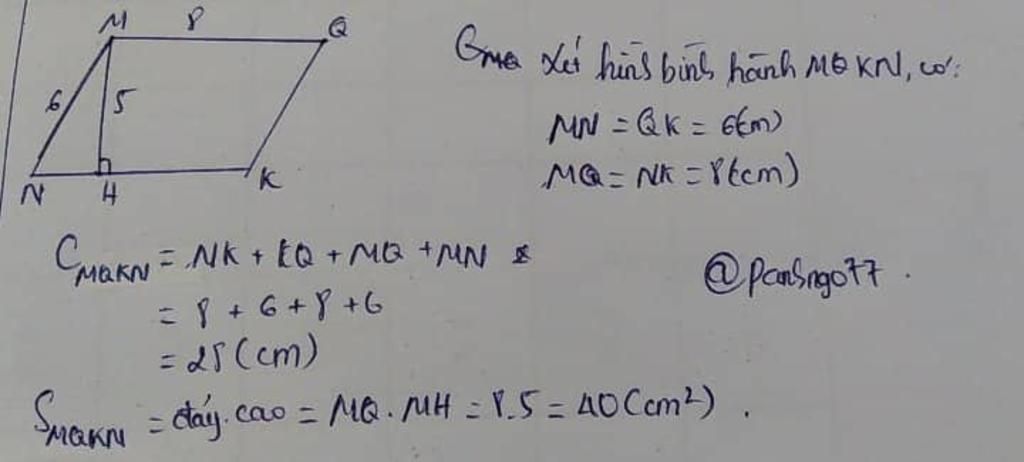 M 8 Q
6 5
N H K
Xét hình bình hành MQKN, có:
MN = QK = 6(cm)
MQ = NK = 8(cm)
C_MQKN = NK + KQ + MQ + MN
= 8 + 6 + 8 + 6
= 28 (cm)
@panhngo77.
S_MQKN = đáy.cao = MQ.MH = 8.5 = 40(cm²).